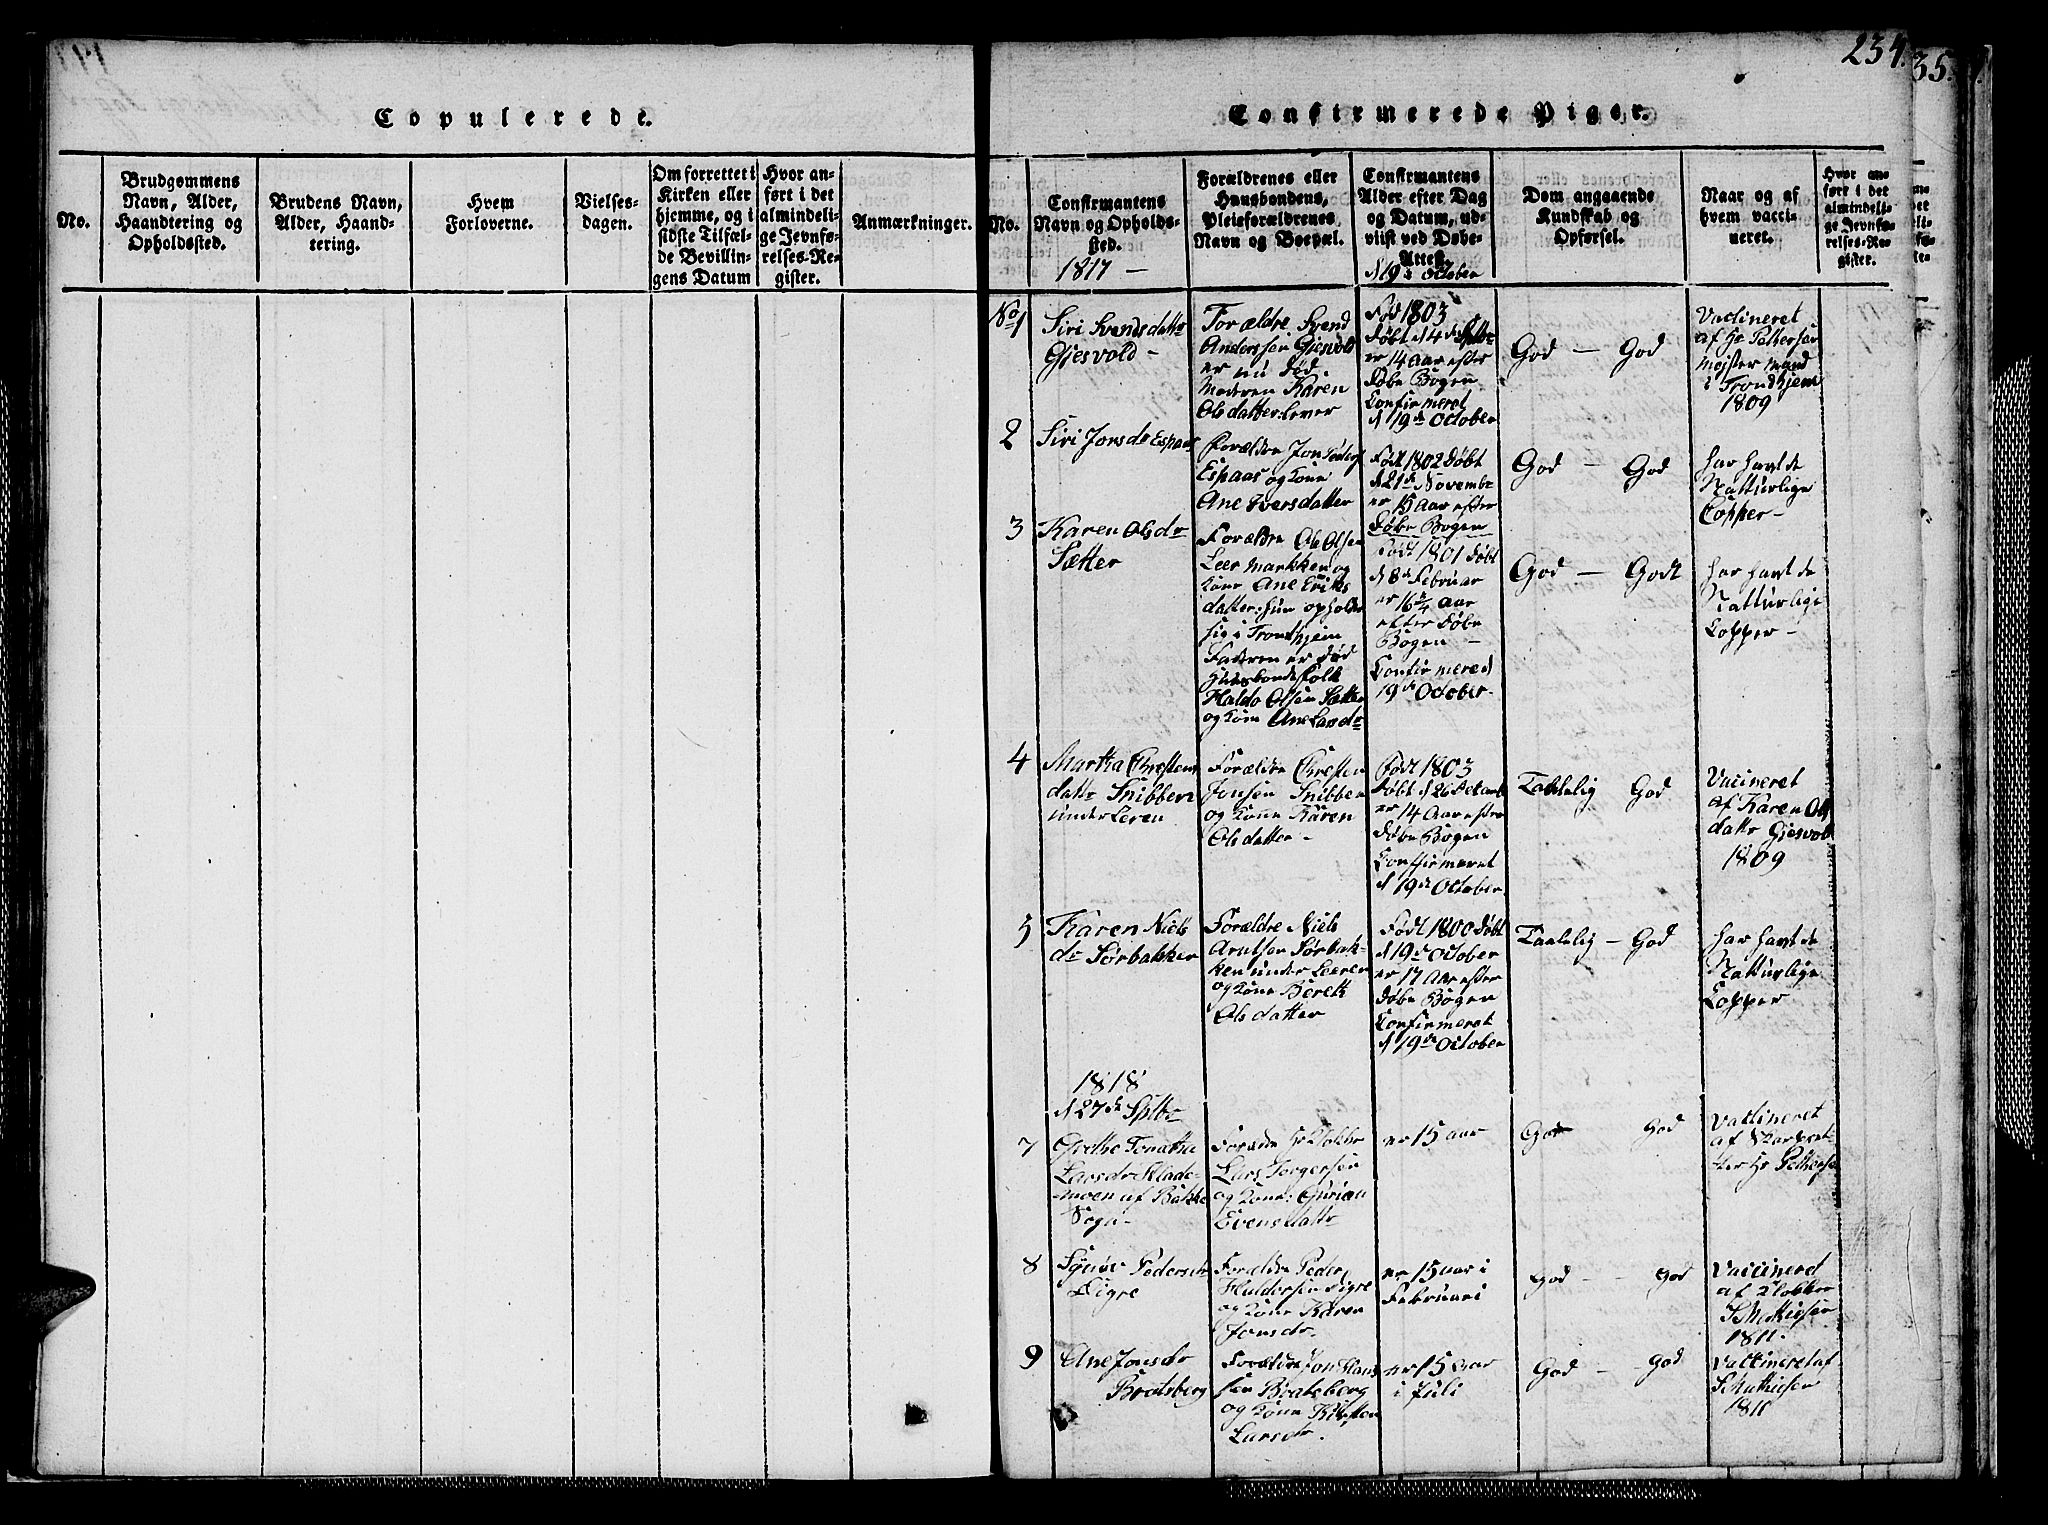 234.
35.
Copulerede.
No.
Brudgommens
Navn, Alder,
Haandtering og
Opholdssted.
Brudens Navn,
Alder, Haand-
tering.
Hvem
Forloverne.
Vielses-
dagen.
Om forrettet i
Kirken eller
hjemme, og i
sidste Tilfæl-
de Bevillin-
gens Datum
Hvor an-
ført i det
almindeli-
ge Jevnfø-
relses-Re-
gister.
Anmærkninger.
Confirmerede Piger.
No.
Confirmantens
Navn og Opholds-
sted.
1817 —
Forældrenes eller
Huusbondens,
Pleieforældrenes
Navn og Boepæl.
Confirmantens
Alder efter Dag
og Datum, ud-
viist ved Døbe-
Attest.
d 19de October
Dom angaaende
Kundskab og
Opførsel.
Naar og af
hvem vacci-
neret.
Hvor an-
ført i det
almindeli-
ge Jevnfø-
relses-Re-
gister.
No 1
Siri Svendsdattr
Gjesvold -
Forældre Svend
Andersen Gjesvold
er nu død
Moderen Karen
Olsdatter lever
Fød 1803
døbt d 4de Sptbr
er 14 Aar efter
Døbe Bogen
Confirmeret
d 19de October
God — God
Vaccineret
af Hr Pettersen
Mojster Mand
i Trondhjem
1809
2
Siri Jonsdr Espaas
Forældre Jon Peders
Espaas og Kone
Ane Iversdatter
Født 1802 Døbt
d 21de Novembr
er 15 Aar efter
Døbe Bogen
God — God
har havt de
Natturlige
Copper -
3
Karen Olsdr
Sætter
Forældre Ole Olsen
Leer Markken og
Kone Ane Eriks
datter: hun opholder
sig i Trondhjem
Faderen er død
Huusbondsfolk
Haldo Olsen Sætter
og Kone Ane Larsdr
Født 1801 døbt
d 8de Februar
er 16 3/4 Aar
efter Døbe
Bogen -
Confirmered
19de October -
God — Godt
har havt de
Natturlige
Copper -
4
Martha Chresten
dattr Snibben
under Leren
Forældre Chresten
Jonsen Snibben
og Kone Karen
Olsdatter -
Født 1803
Døbt d 26 Decemb
er 14 Aar efter
Døbe Bogen
Confirmeret
d 19de October
Taalelig God
Vaccineret
af Karen Ols
dattr Gjesvold
1809
5
Karen Niels
dr Sørbakken
Forældre Niels
Arntsen Sørbak-
ken under Leeren
og Kone Berett
Olsdatter
Født 1800 Døbt
d 19de October
er 17 Aar efter
Døbe Bogen
Confirmeret
d 19de October
Taalelig — God
har havt de
Natturlige
Copper
1818
d 27de Sptbr
7
Grethe Jonatha
Larsdr Slade-
moen af Bakke
Sogn -
Foræddre Hr Klokker
Lars Jørgersen
og Kone: Gurian
Evensdattr
er 15 aar
God God
Vaccineret
af
Hr Pettersen
8
Synøv Pedersdr
Digre
Forældre Peder
Haldersen Digre
og Kone Karen
Jonsdr.
er 15 aar i
Februari
God — God
Vaccineret
af Klokker
S Mathiesen
1811.
9
Ane Jonsdr
Bratsberg
Forældre Jon Hans
sen Bratsberg
og Kone Kirsten
Larsdr.
er 15 aar
i Juli
God — God
Vaccineret af
S Mathiesen
1811